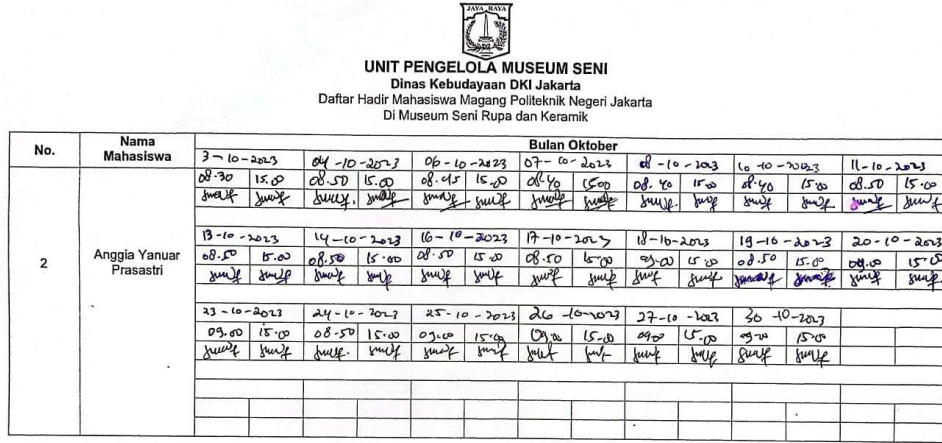 JAYA RAYA
UNIT PENGELOLA MUSEUM SENI
Dinas Kebudayaan DKI Jakarta
Daftar Hadir Mahasiswa Magang Politeknik Negeri Jakarta
Di Museum Seni Rupa dan Keramik
No. Nama Mahasiswa Bulan Oktober
3-10-2023 04-10-2023 06-10-2023 07-10-2023 08-10-2023 10-10-2023 11-10-2023
08.30 15.00 08.50 15.00 08.45 15.00 08.40 1500 08.40 15.00 08.40 15.00 08.50 15.00
2 Anggia Yanuar Prasastri
13-10-2023 14-10-2023 16-10-2023 17-10-2023 18-10-2023 19-10-2023 20-10-2023
08.50 15.00 08.50 15.00 08.50 15.00 08.50 15.00 09.00 15.00 08.50 15.00 09.00 15.00
23-10-2023 24-10-2023 25-10-2023 26-10-2023 27-10-2023 30-10-2023
09.00 15.00 08-50 15.00 09.00 15.00 09.00 15.00 0900 15.00 09.00 15.00